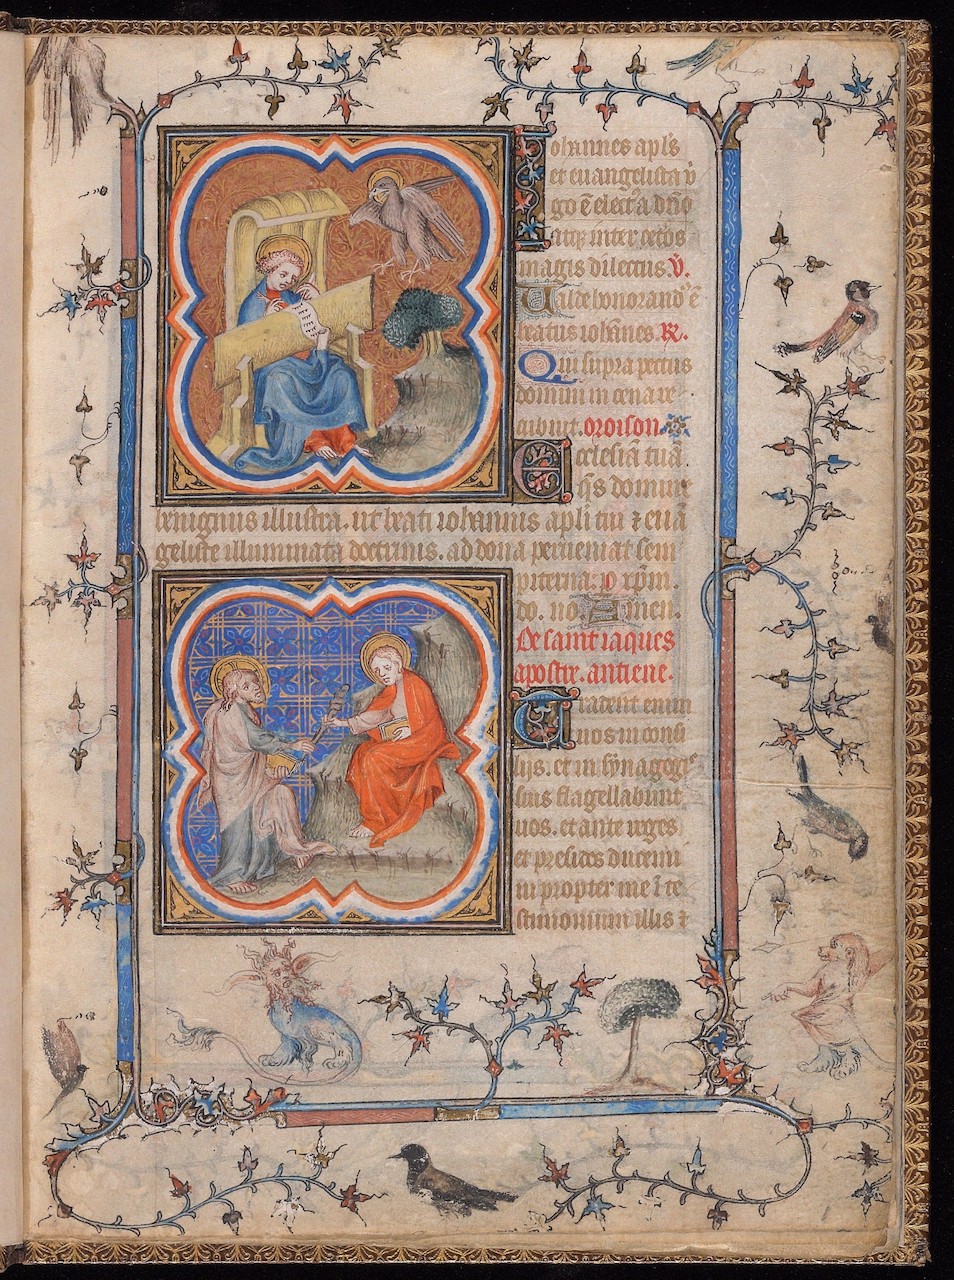 Johannes apl's
et euangelista v̄
go ē elect' a dn̄o
atq; inter cetos
magis dilectus. V̄.
Ualde honorand' ē
beatus iohānes. R̄.
Qui supra pectus
domini in cena re
cubuit. oroison.
Ecclesiā tuā.
q̄s domine
benignus illustra. ut beati iohannis apl'i tui ⁊ euā
geliste illuminata doctrinis. ad dona perueniat sem
piterna. p xp̄m.
do. no Amen.
De saint iaques
apostre. antiene.
Tradent enim
uos in consi
liis. et in synagogis
suis flagellabunt
uos. et ante reges
et presides ducemi
ni propter me ī te
stimonium illis ⁊